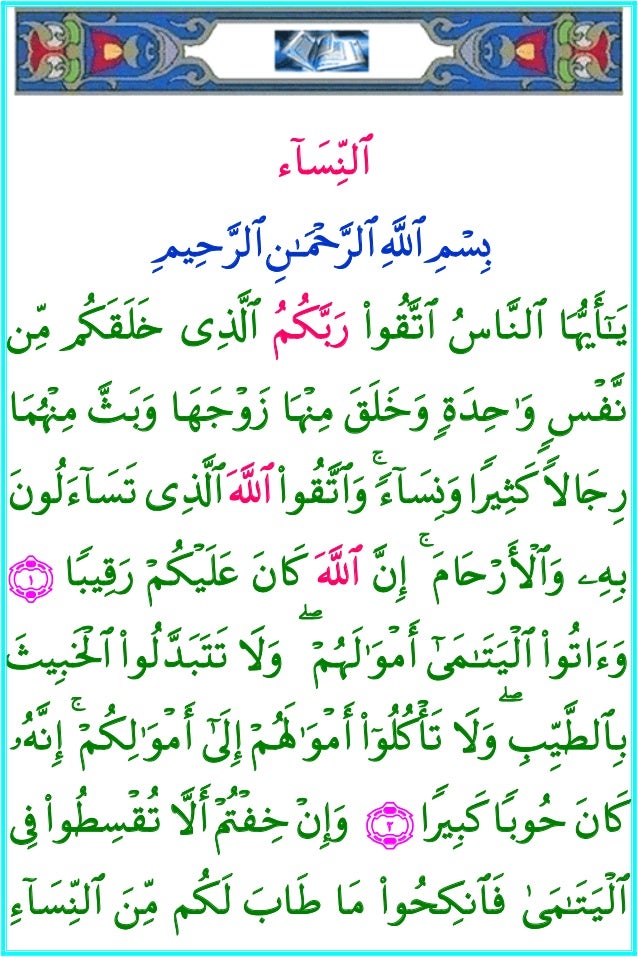 ٱلنِّسَآء
بِسْمِ ٱللَّهِ ٱلرَّحْمَـٰنِ ٱلرَّحِيمِ
يَـٰٓأَيُّهَا ٱلنَّاسُ ٱتَّقُوا۟ رَبَّكُمُ ٱلَّذِى خَلَقَكُم مِّن
نَّفْسٍ وَٰحِدَةٍ وَخَلَقَ مِنْهَا زَوْجَهَا وَبَثَّ مِنْهُمَا
رِجَالًا كَثِيرًا وَنِسَآءً ۚ وَٱتَّقُوا۟ ٱللَّهَ ٱلَّذِى تَسَآءَلُونَ
بِهِۦ وَٱلْأَرْحَامَ ۚ إِنَّ ٱللَّهَ كَانَ عَلَيْكُمْ رَقِيبًا ١
وَءَاتُوا۟ ٱلْيَتَـٰمَىٰٓ أَمْوَٰلَهُمْ ۖ وَلَا تَتَبَدَّلُوا۟ ٱلْخَبِيثَ
بِٱلطَّيِّبِ ۖ وَلَا تَأْكُلُوٓا۟ أَمْوَٰلَهُمْ إِلَىٰٓ أَمْوَٰلِكُمْ ۚ إِنَّهُۥ
كَانَ حُوبًا كَبِيرًا ٢ وَإِنْ خِفْتُمْ أَلَّا تُقْسِطُوا۟ فِى
ٱلْيَتَـٰمَىٰ فَٱنكِحُوا۟ مَا طَابَ لَكُم مِّنَ ٱلنِّسَآءِ